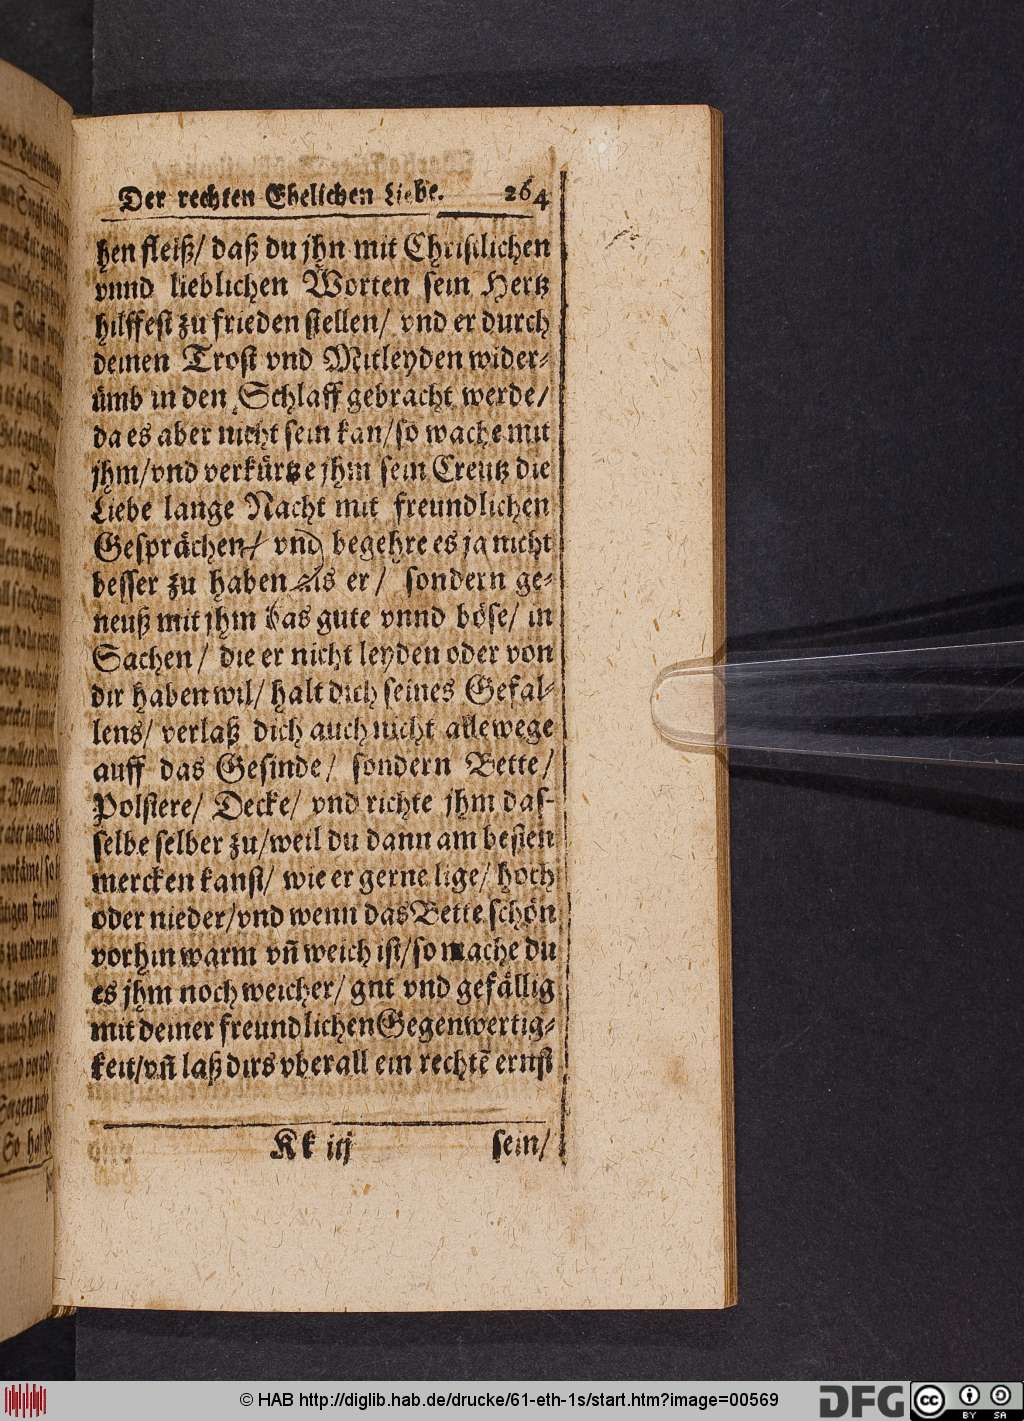 Der rechten Ehelichen Liebe. 264
hen fleiß/ daß du jhn mit Christlichen
vnnd lieblichen Worten sein Hertz
hilffest zu frieden stellen/ vnd er durch
deinen Trost vnd Mitleyden wider-
ümb in den Schlaff gebracht werde/
da es aber nicht sein kan/so wache mit
jhm/vnd verkürtze jhm sein Creutz die
Liebe lange Nacht mit freundlichen
Gesprächen/ vnd begehre es ja nicht
besser zu haben als er/ sondern ge-
neuß mit jhm das gute vnnd böse/ in
Sachen/ die er nicht leyden oder von
dir haben wil/ halt dich seines Gefal-
lens/ verlaß dich auch nicht allewege
auff das Gesinde/ sondern Bette/
Polstere/ Decke/ vnd richte jhm das-
selbe selber zu/weil du dann am besten
mercken kanst/ wie er gerne lige/ hoch
oder nieder/vnd wenn das Bette schön
vorhin warm vñ weich ist/so mache du
es jhm noch weicher/ gut vnd gefällig
mit deiner freundlichen Gegenwertig-
keit/vñ laß dirs vberall ein rechtē ernst
Kk iij sein/
© HAB http://diglib.hab.de/drucke/61-eth-1s/start.htm?image=00569 DFG cc BY SA